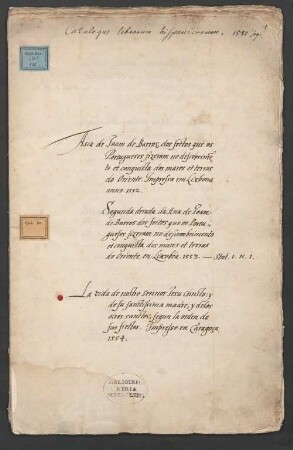 Catalogus librorum hispanicorum. 1580
1
Asia de Joam de Barros, dos feitos que os
Portugueses fizeram no descobrimen-
to et conquista dos mares et terras
do Oriente. Impressa em Lixboa
anno. 1552.
Segunda decada da Asia de Joam
de Barros dos feitos que os Portu-
gueses fizeram no descobrimento
et conquista dos mares et terras
do Oriente. en Lixboa. 1553. — Stat. 1. N. 1.
La vida de nostro Sennor Jesu Christo, y
de su santissima madre, y delos
otros santos, segun la orden de
sus fiestas. Impresso en Caragoça
1554.
BIBLIOTHECA
REGIA
MONACENSIS